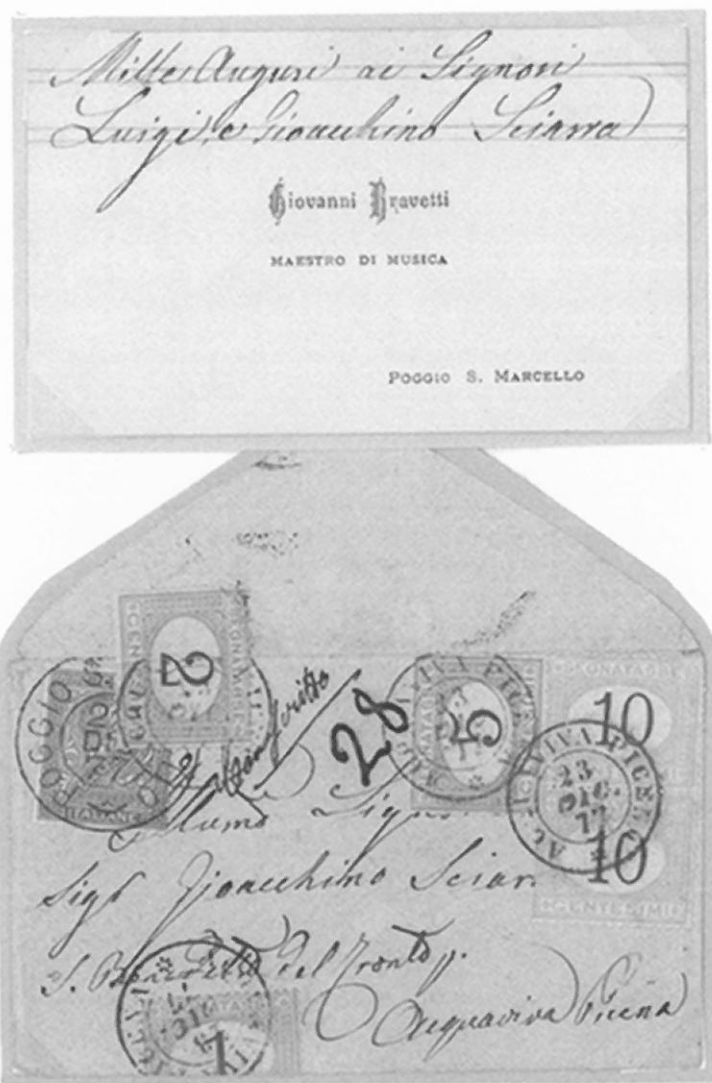 Mille Auguri ai Signori
Luigi e Gioacchino Sciarra
Giovanni Bravetti
MAESTRO DI MUSICA
POGGIO S. MARCELLO
2
28
5
10
POGGIO
ACQUAVIVA PICENA
23
DIC.
77
10
CENTESIMI
Sigr Gioacchino Sciar
S. Benedetto del Tronto p.
Acquaviva Picena
1